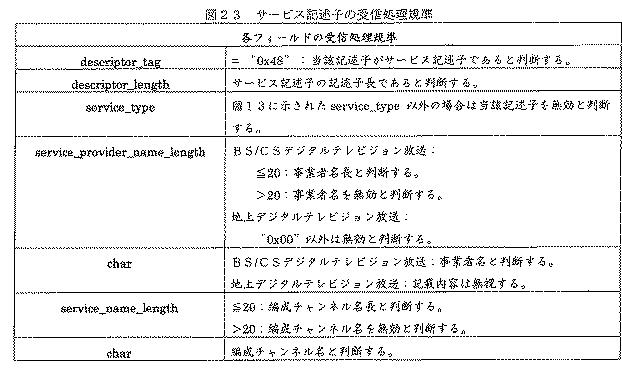 図２３　サービス記述子の受信処理規準
各フィールドの受信処理規準
descriptor_tag
＝ “0x48”：当該記述子がサービス記述子であると判断する。
descriptor_length
サービス記述子の記述子長であると判断する。
service_type
図１３に示された service_type 以外の場合は当該記述子を無効と判断
する。
service_provider_name_length
ＢＳ/ＣＳデジタルテレビジョン放送：
≦20：事業者名長と判断する。
＞20：事業者名を無効と判断する。
地上デジタルテレビジョン放送：
“0x00” 以外は無効と判断する。
char
ＢＳ/ＣＳデジタルテレビジョン放送：事業者名と判断する。
地上デジタルテレビジョン放送：記載内容は無視する。
service_name_length
≦20：編成チャンネル名長と判断する。
＞20：編成チャンネル名を無効と判断する。
char
編成チャンネル名と判断する。